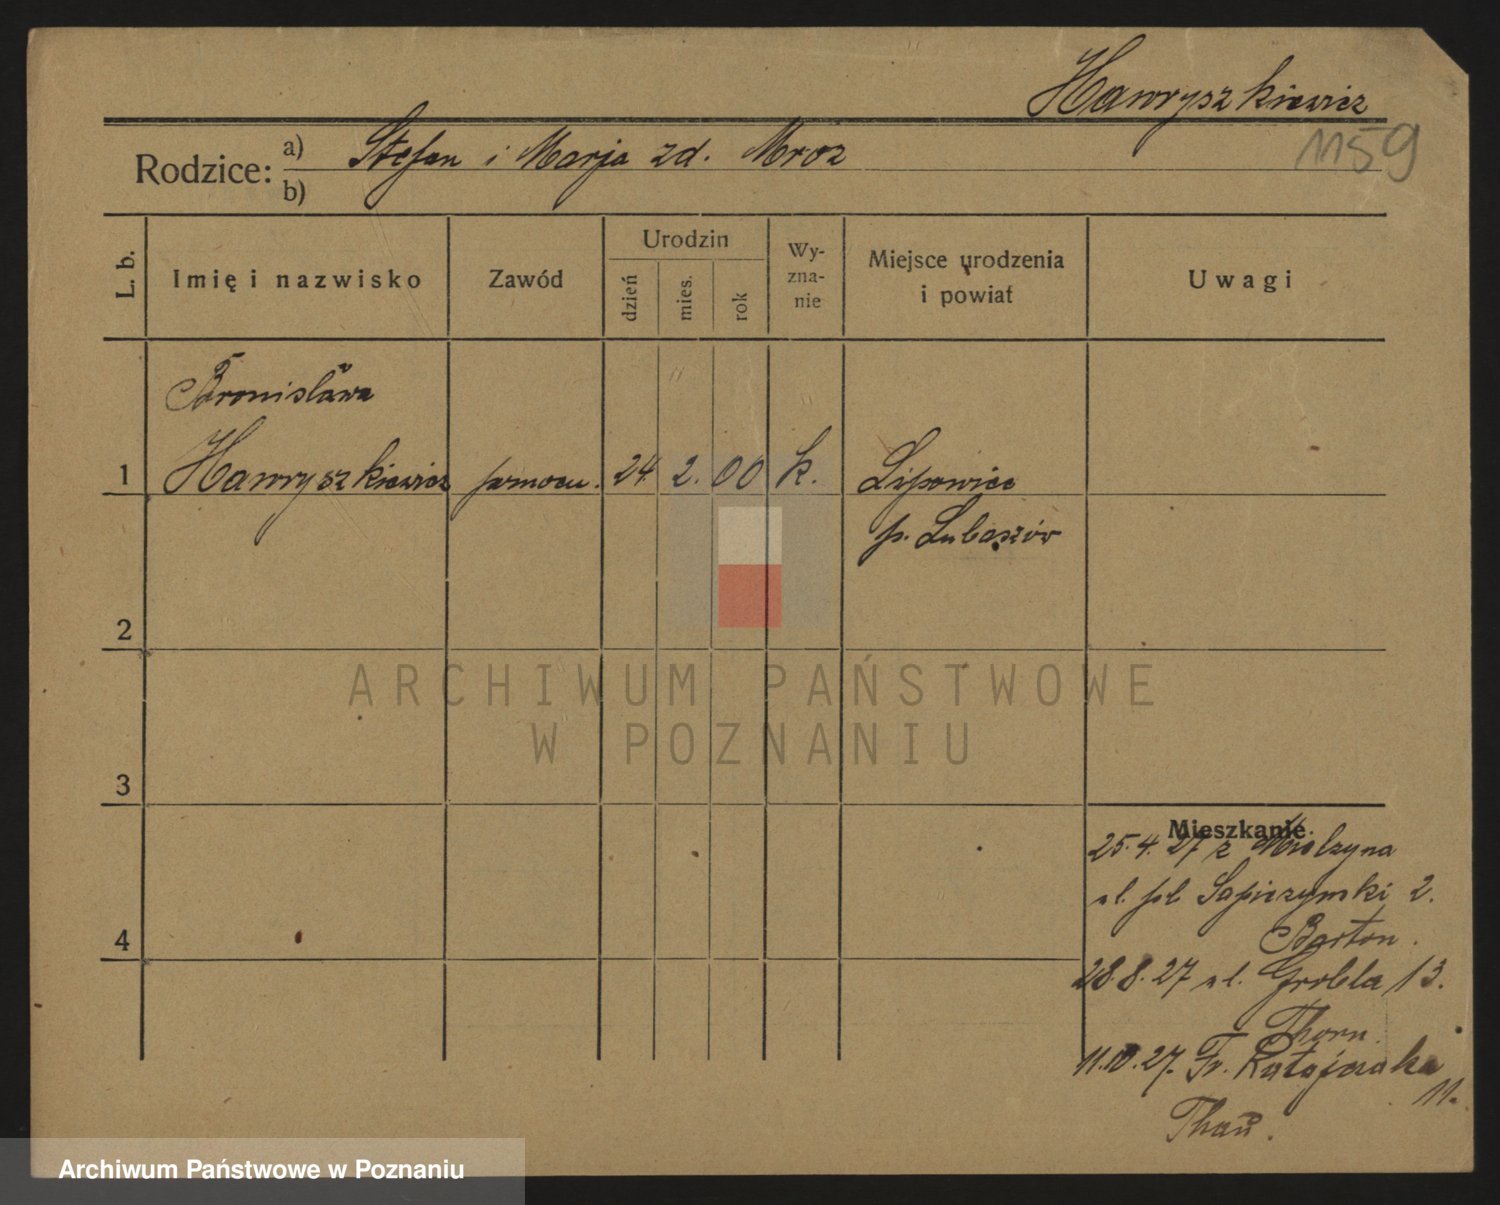 Hawryszkiewicz
1159
Rodzice: a) Stefan i Marja zd. Mroz
b)
L. b.
Imię i nazwisko
Zawód
Urodzin
dzień
mies.
rok
Wy-
zna-
nie
Miejsce urodzenia
i powiat
Uwagi
Bronisława
1 Hawryszkiewicz 24. 2. 00 k. Lipowiec
p. Lubaszów
2
ARCHIWUM PAŃSTWOWE
W POZNANIU
3
Mieszkanie.
25.4.27 z Mielzyna
ul. pl. Sapieżynski 2.
Barton.
4
28.8.27 ul. Grobla 13.
Thorn.
11.10.27. Fr. Ratajczaka
11.
Archiwum Państwowe w Poznaniu